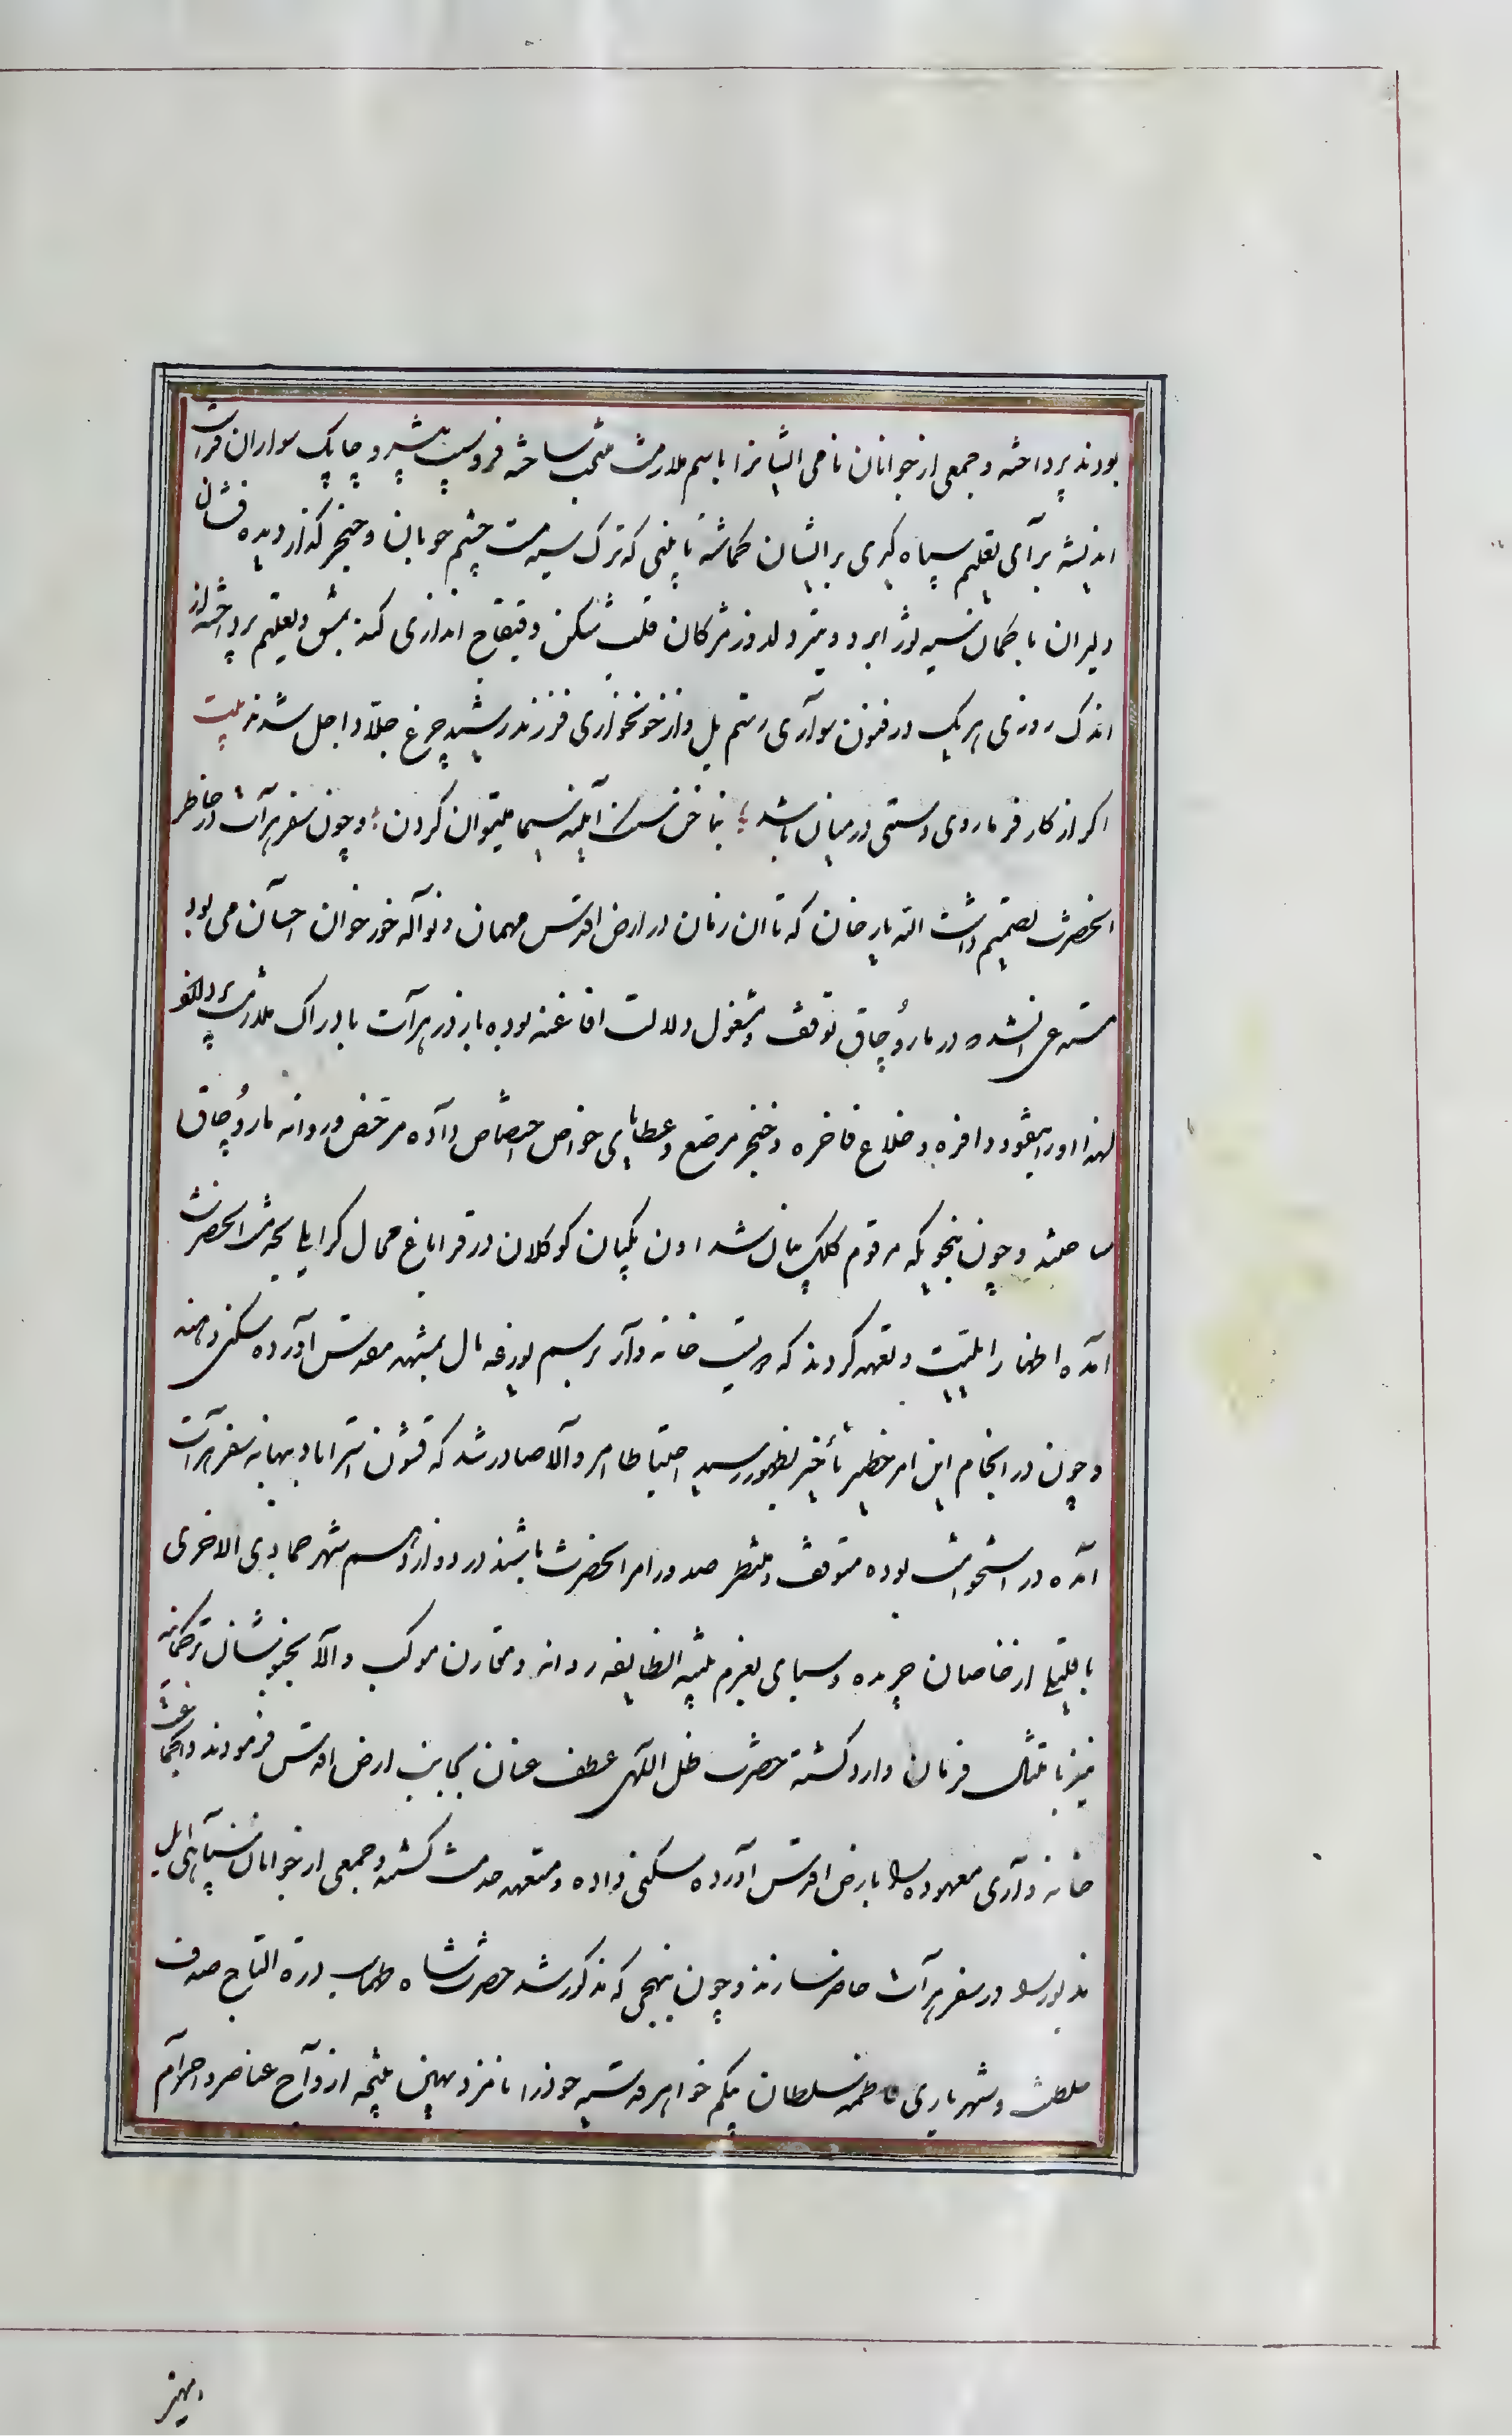 بودند پرداخته و جمعی از جوانان نامی ایشانرا باسم ملازمت منتخب ساخته فروسیت پیشه و چاپک سواران فراست
اندیشه برای تعلیم سپاه کری بر ایشان کماشته تا بفنی که ترک سیه مست چشم خوبان و خنجر کذار دیده فتان
دلبران با کمان سیه توز ابرو و تیر دلدوز مژکان قلب شکن و قیقاج اندازی کند بمشق و تعلیم پرداخته از
اندک روزی هر یک در فنون سواری رستم یل و از خونخواری فرزند رشید چرغ جلاد اجل شدند بیت
اکر از کار فرما روی دستی در میان باشد بناخن سنک را آیینه سیما میتوان کردن و چون سفر هرات در خاطر
انحضرت تصمیم داشت الله یار خان که تا ان زمان در ارض اقدس مهمان و نواله خور خوان احسان می بود
مستدعی شده در ماروچاق توقف و مشغول دلالت افاغنه بوده باز در هرات بادراک ملازمت پردازد
لهذا او را بنقود وافره و خلاع فاخره و خنجر مرصع و عطایای خواص اختصاص داده مرخص و روانه ماروچاق
ساختند و چون بنحویکه مرقوم کلک بیان شد اون بکیان کوکلان در قراباغ محال کرایلی بخدمت انحضرت
آمده اظهار ایلیت و تعهد کردند که دویست خانه وار برسم یورغه مال بمشهد مقدس آورده سکنی دهند
و چون در انجام این امر خطیر تأخیر بظهور رسید احتیاطا امر والا صادر شد که قشون استراباد ببهانه سفر هرات
آمده در استخوانت بوده متوقف و منتظر صدور امر انحضرت باشند در دوازدهم شهر جمادی الاخری
با قلیلی از خاصان جریده و سبای بعزم تنبیه انطایفه روانه و مقارن موکب والا بخبوشان ترکمانیه
نیز بامتثال فرمان وارد کشته حضرت ظل اللهی عطف عنان بجانب ارض اقدس فرمودند و انجماعت
خانه واری معهوده را بارض اقدس آورده سکنی داده و متعهد خدمت کشته و جمعی از جوانان سپاهی ایل
مذبور را در سفر هرات حاضر سازند و چون بنهجی که مذکور شد حضرت شاه طهماسب درة التاج صدف
سلطنت و شهریاری فاطمه سلطان بیکم خواهر قدسیه خود را نامزد مهین نتیجه ازدواج عناصر و اجرام
مهین